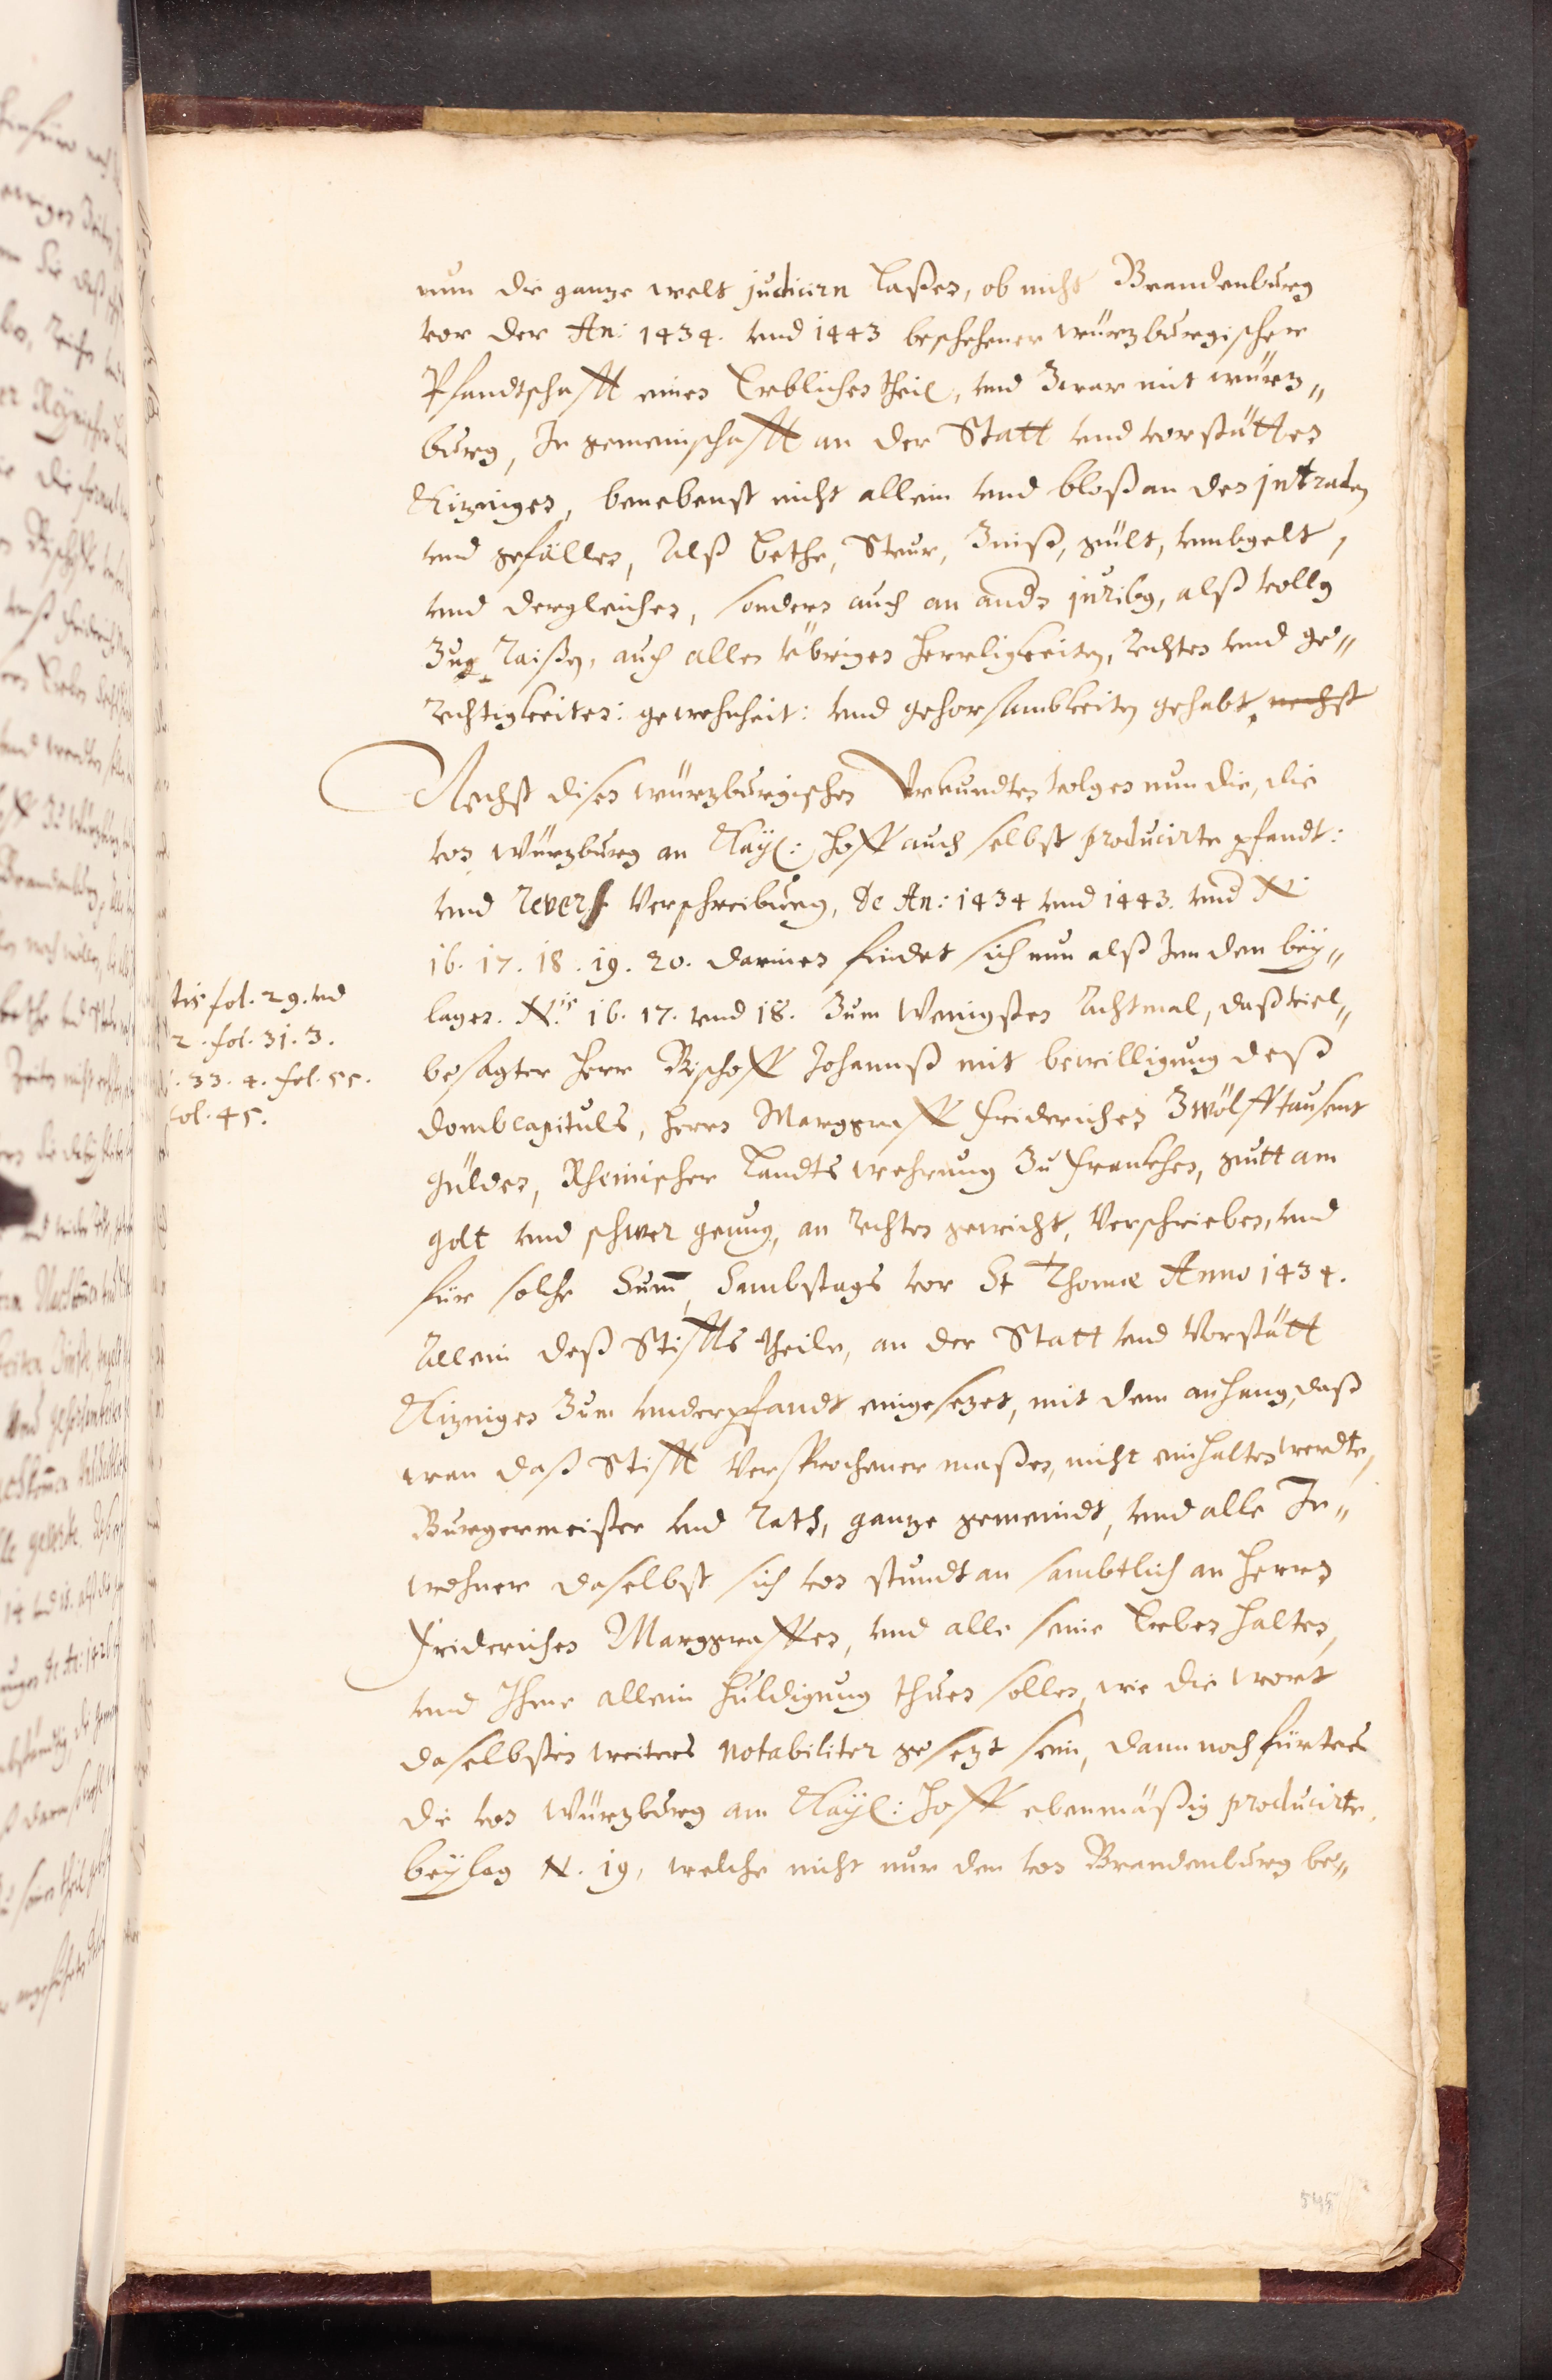 nun die ganze welt judicirn laßen, ob nicht Brandenburg
vor der An: 1434. vnd 1443 beschehener würzburgischer
Pfandtschafft einen Erblichen theil, vnd Zwar mit würz„
burg, In gemeinschafft an der Statt vnd vorstätten
Kizingen, benebenst nicht allein vnd bloß an den jntraden
vnd gefällen, Alß bethe, Steur, Zinß, gült, vmbgelt,
vnd dergleichen, sondern auch an andn juribg, alß volg
Zug Raisen, auch allen übrigen herrligkeiten, Rechten vnd ge„
rechtigkeiten: gewohnheit: vnd gehorsambkeiten gehabt, nechst
Nechst disen würzburgischen Vrkundten volgen nun die, die
von Würzburg an Kayl: Hoff auch selbst producirte pfandt:
vnd Revers Verschreibung, de An: 1434 vnd 1443. vnd N:
16. 17. 18. 19. 20. darinen findet sich nun alß Inn den bey„
lagen. N.is 16. 17. vnd 18. Zum Wenigsten Achtmal, daß viel„
besagter Herr Bischoff Johannß mit bewilligung deß
domb Capituls, Herrn Marggraff Friderichen Zwölfftausent
Gülden, Rheinischer Landts wehrung Zu Franckhen, gutt am
Golt vnd schwer genug, an rechten gewicht, Verschrieben, vnd
für solche Sum̅, Sambstags vor St Thomæ Anno 1434.
Allein deß Stiffts theile, an der Statt vnd Vorstätt
Kizingen Zum vnderpfandt eingesezet, mit dem anhang, daß
wan daß Stifft Versprochener maßen, nicht einhalten werdte,
Burgermeister vnd Rath, ganze gemeindt, vnd alle In„
wohner daselbst sich von stundt an sambtlich an Herrn
Friderichen Marggraffen, vnd alle seine Erben halten,
vnd Ihme allein Huldigung thuen sollen, wie die wort
daselbsten weiters notabiliter gesezt sein, dann noch fürters
die von Würzburg am Kayl: Hoff ebenmäßig producirte,
beylag N. 19, welche nicht nur den von Brandenburg be„
tis fol. 29. vnd
2. fol. 31. 3.
. 33. 4. fol. 55.
fol. 45.